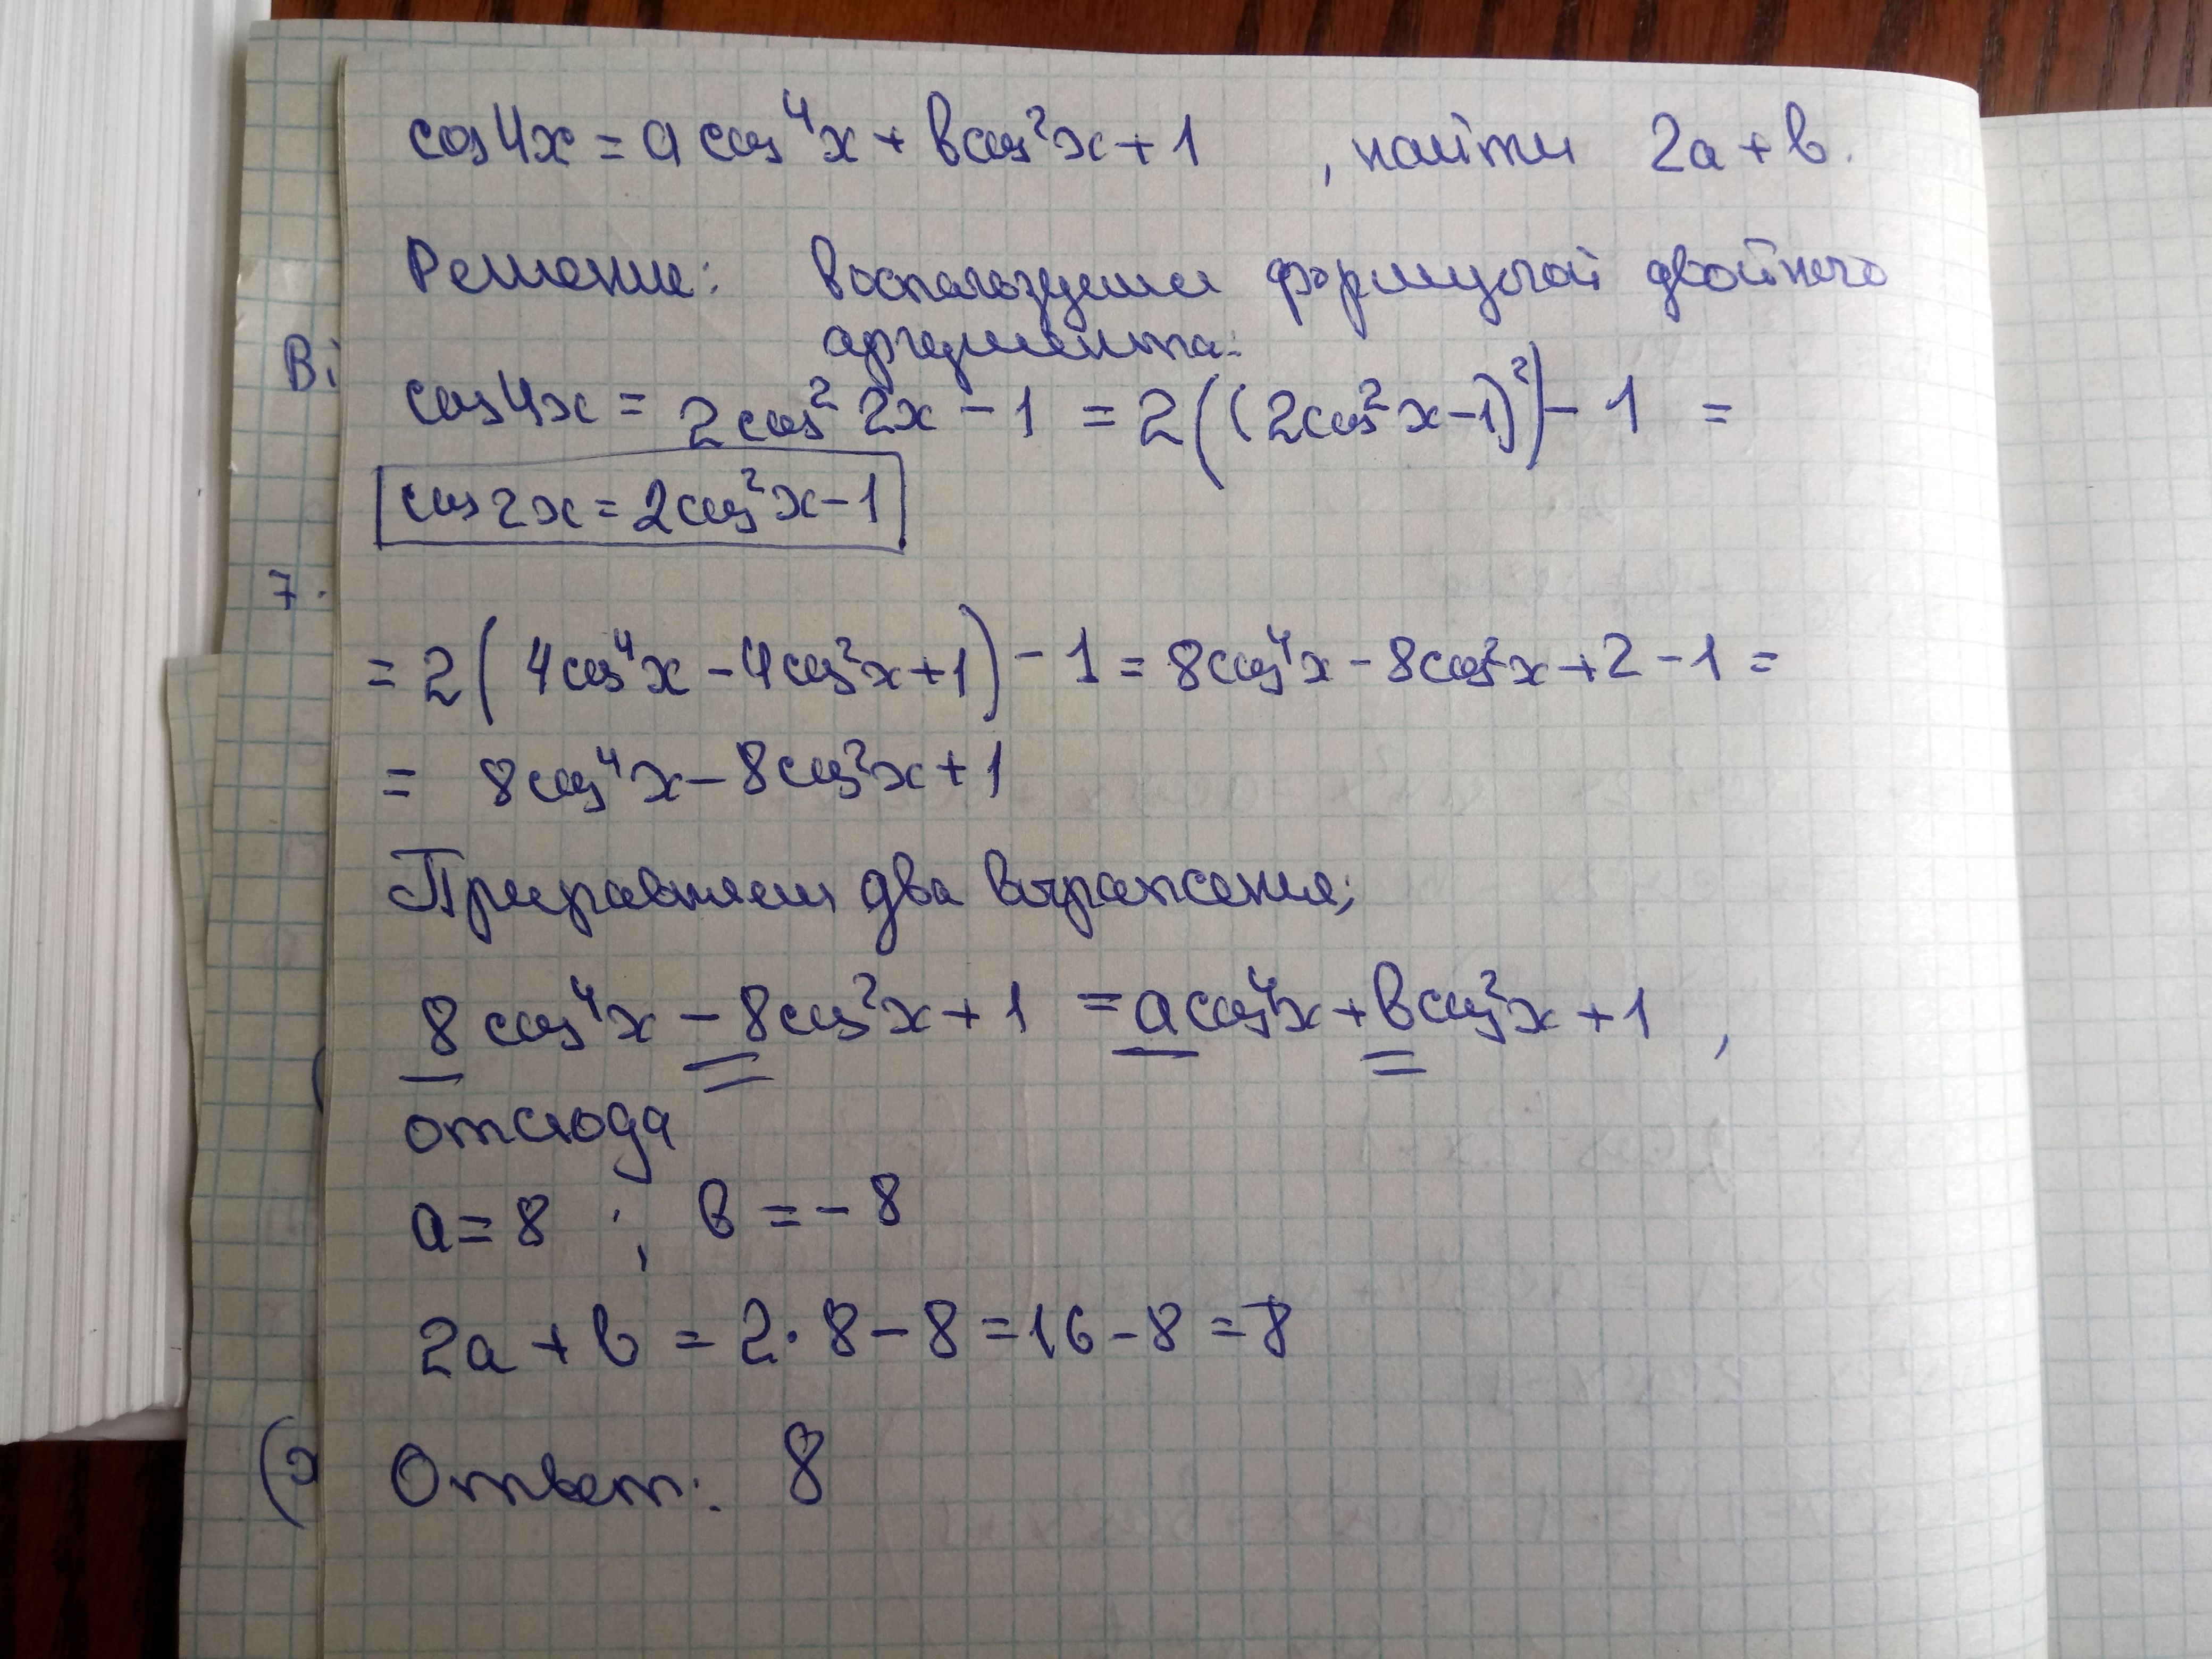 cos4x = a cos⁴x + bcos²x + 1 , найти 2a + b.
Решение: воспользуемся формулой двойного
аргумента:
cos4x = 2cos²2x - 1 = 2((2cos²x-1)²) - 1 =
cos2x = 2cos²x-1
= 2(4cos⁴x - 4cos²x+1) - 1 = 8cos⁴x - 8cos²x + 2 - 1 =
= 8cos⁴x - 8cos²x + 1
Приравняем два выражения;
8cos⁴x - 8cos²x + 1 = acos⁴x + bcos²x + 1 ,
отсюда
a = 8 ; b = - 8
2a + b = 2·8 - 8 = 16 - 8 = 8
Ответ: 8
Bi
7.
(
(x